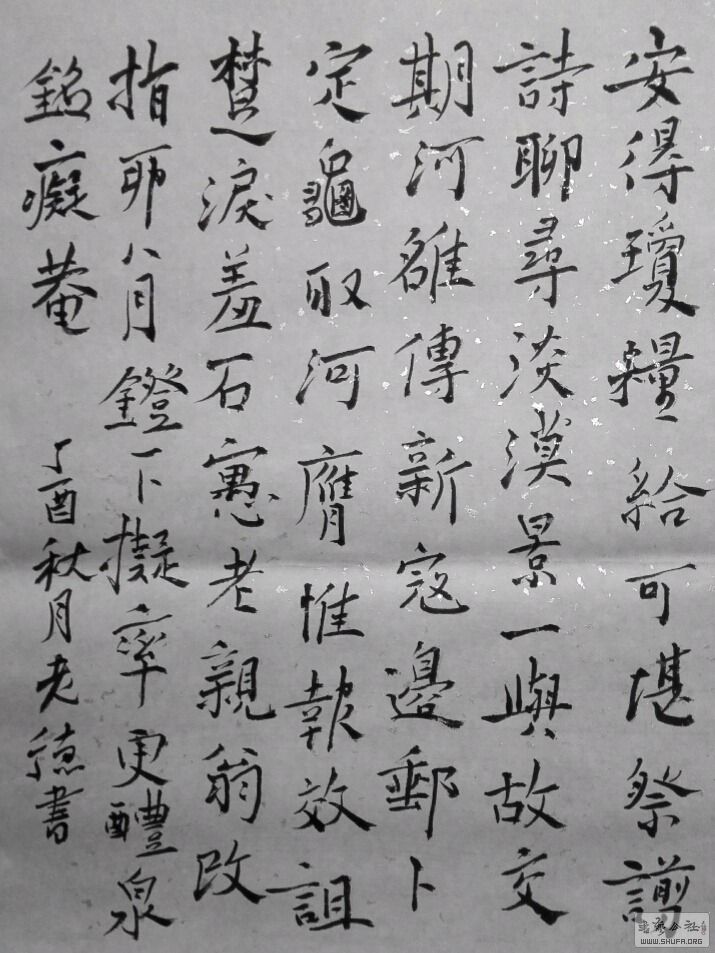 安得瓊糧給可堪祭
詩聊尋淡漠景一與故交
期河雒傳新寇邊郵卜
定龜取河膺惟報效詛
楚淚羞石寃老親翁改
指邢八月鐙下擬率更醴泉
銘癡菴 丁酉秋月老德書
WWW.SHUFA.ORG